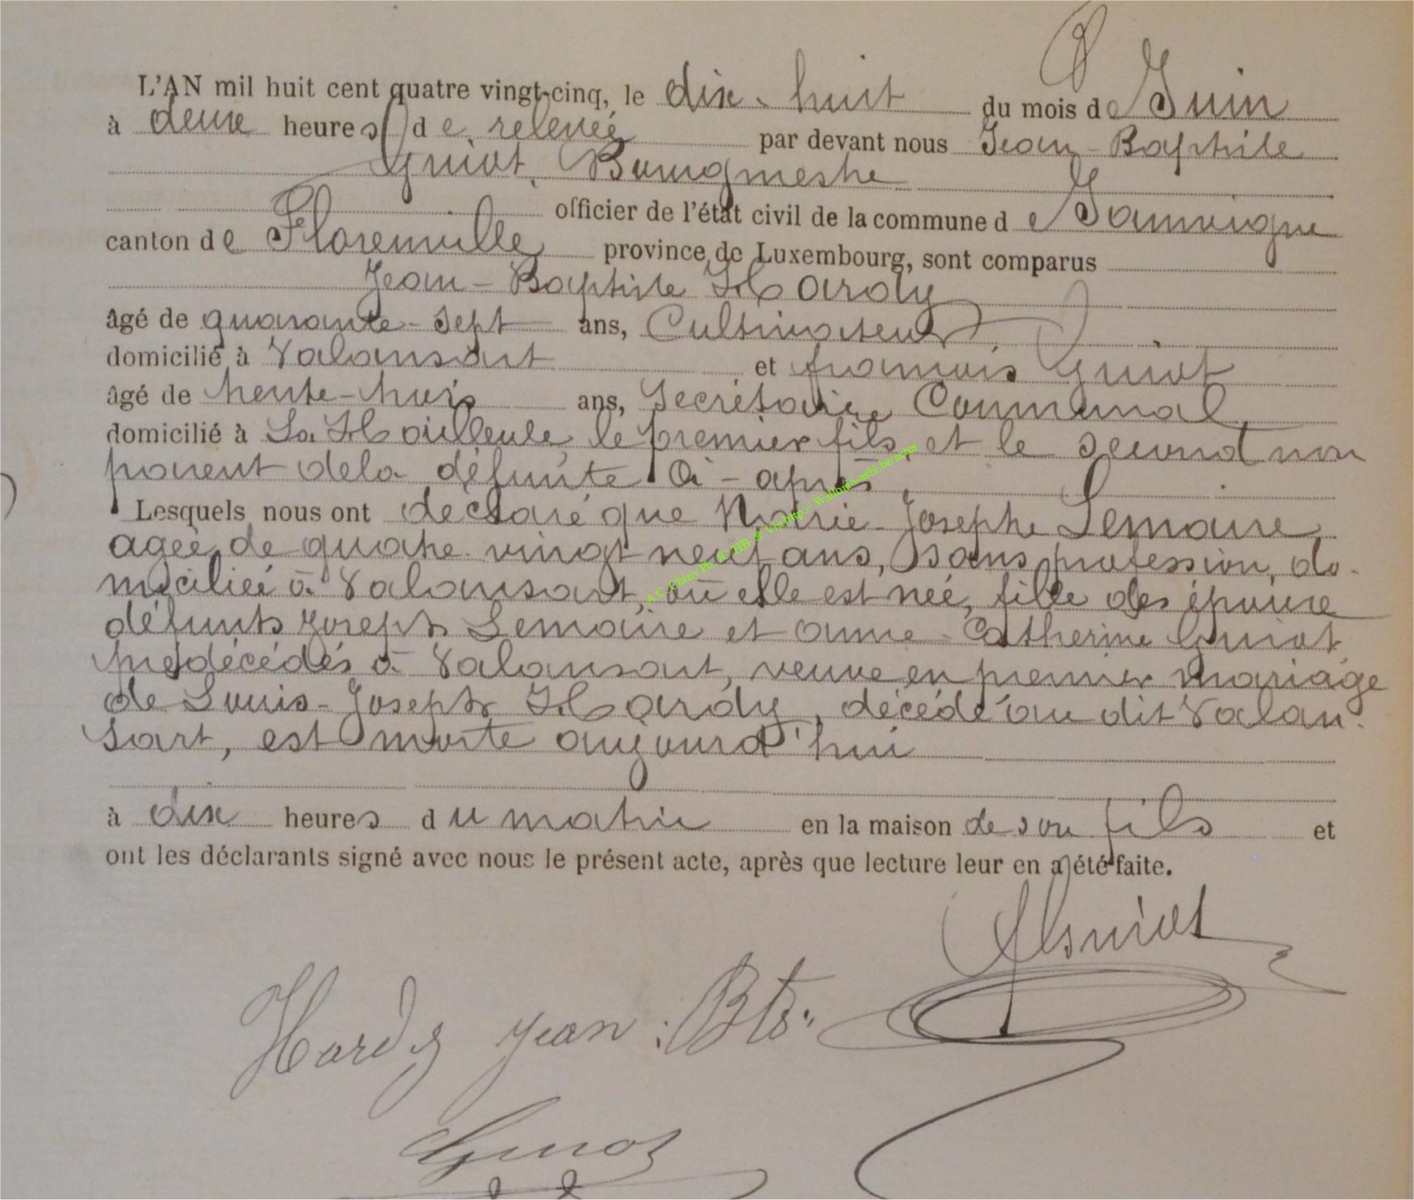 L'AN mil huit cent quatre vingt-cinq, le dix-huit du mois de Juin
à deux heures de relevée par devant nous Jean-Baptiste
Guiot, Bourgmestre
officier de l'état civil de la commune de Jamoigne
canton de Florenville province de Luxembourg, sont comparus
Jean-Baptiste Hardy
âgé de quarante-sept ans, Cultivateur,
domicilié à Valansart et françois Guiot
âgé de trente-huit ans, Secrétaire Communal,
domicilié à La Hailleule, le premier fils, et le second non
parent de la défunte ci-après,
Lesquels nous ont déclaré que Marie-Josephe Lemaire,
agée de quatre-vingt-neuf ans, sans profession, do-
miciliée à Valansart, où elle est née, fille des époux
défunts Joseph Lemaire et anne-Catherine Guiot,
prédécédés à Valansart, veuve en premier mariage
de Louis-Joseph Hardy, décédé au dit Valan-
sart, est morte aujourd'hui
à dix heures du matin en la maison de son fils et
ont les déclarants signé avec nous le présent acte, après que lecture leur en a été faite.
Guiot
Hardy jean Bte
Guiot